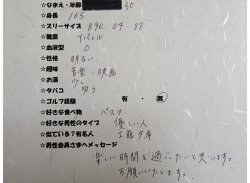 ☆なまえ・年齢 30
☆身長 165
☆スリーサイズ 890. 64. 88
☆職業 アパレル
☆血液型 O
☆性格 明るい
☆趣味 音楽・映画
☆お酒 少し
☆タバコ 吸う
☆ゴルフ経験 有・無
☆好きな食べ物 パスタ
☆好きな男性のタイプ 優しい人
☆似ている?有名人 工藤夕貴
☆男性会員さまへメッセージ
楽しい時間を過ごしたいと思います。
お願いいたします。